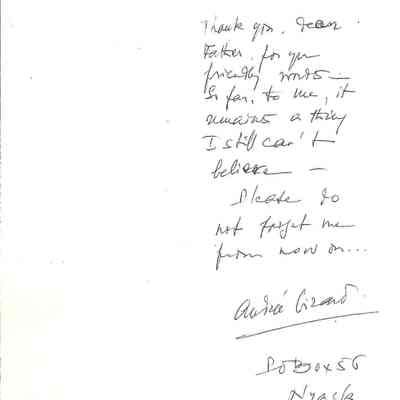 Thank you, dear
Father, for your
friendly words —
So far, to me, it
remains a thing
I still can't
believe —
Please do
not forget me
from now on...
André Girard.
PO Box 56
Nyack